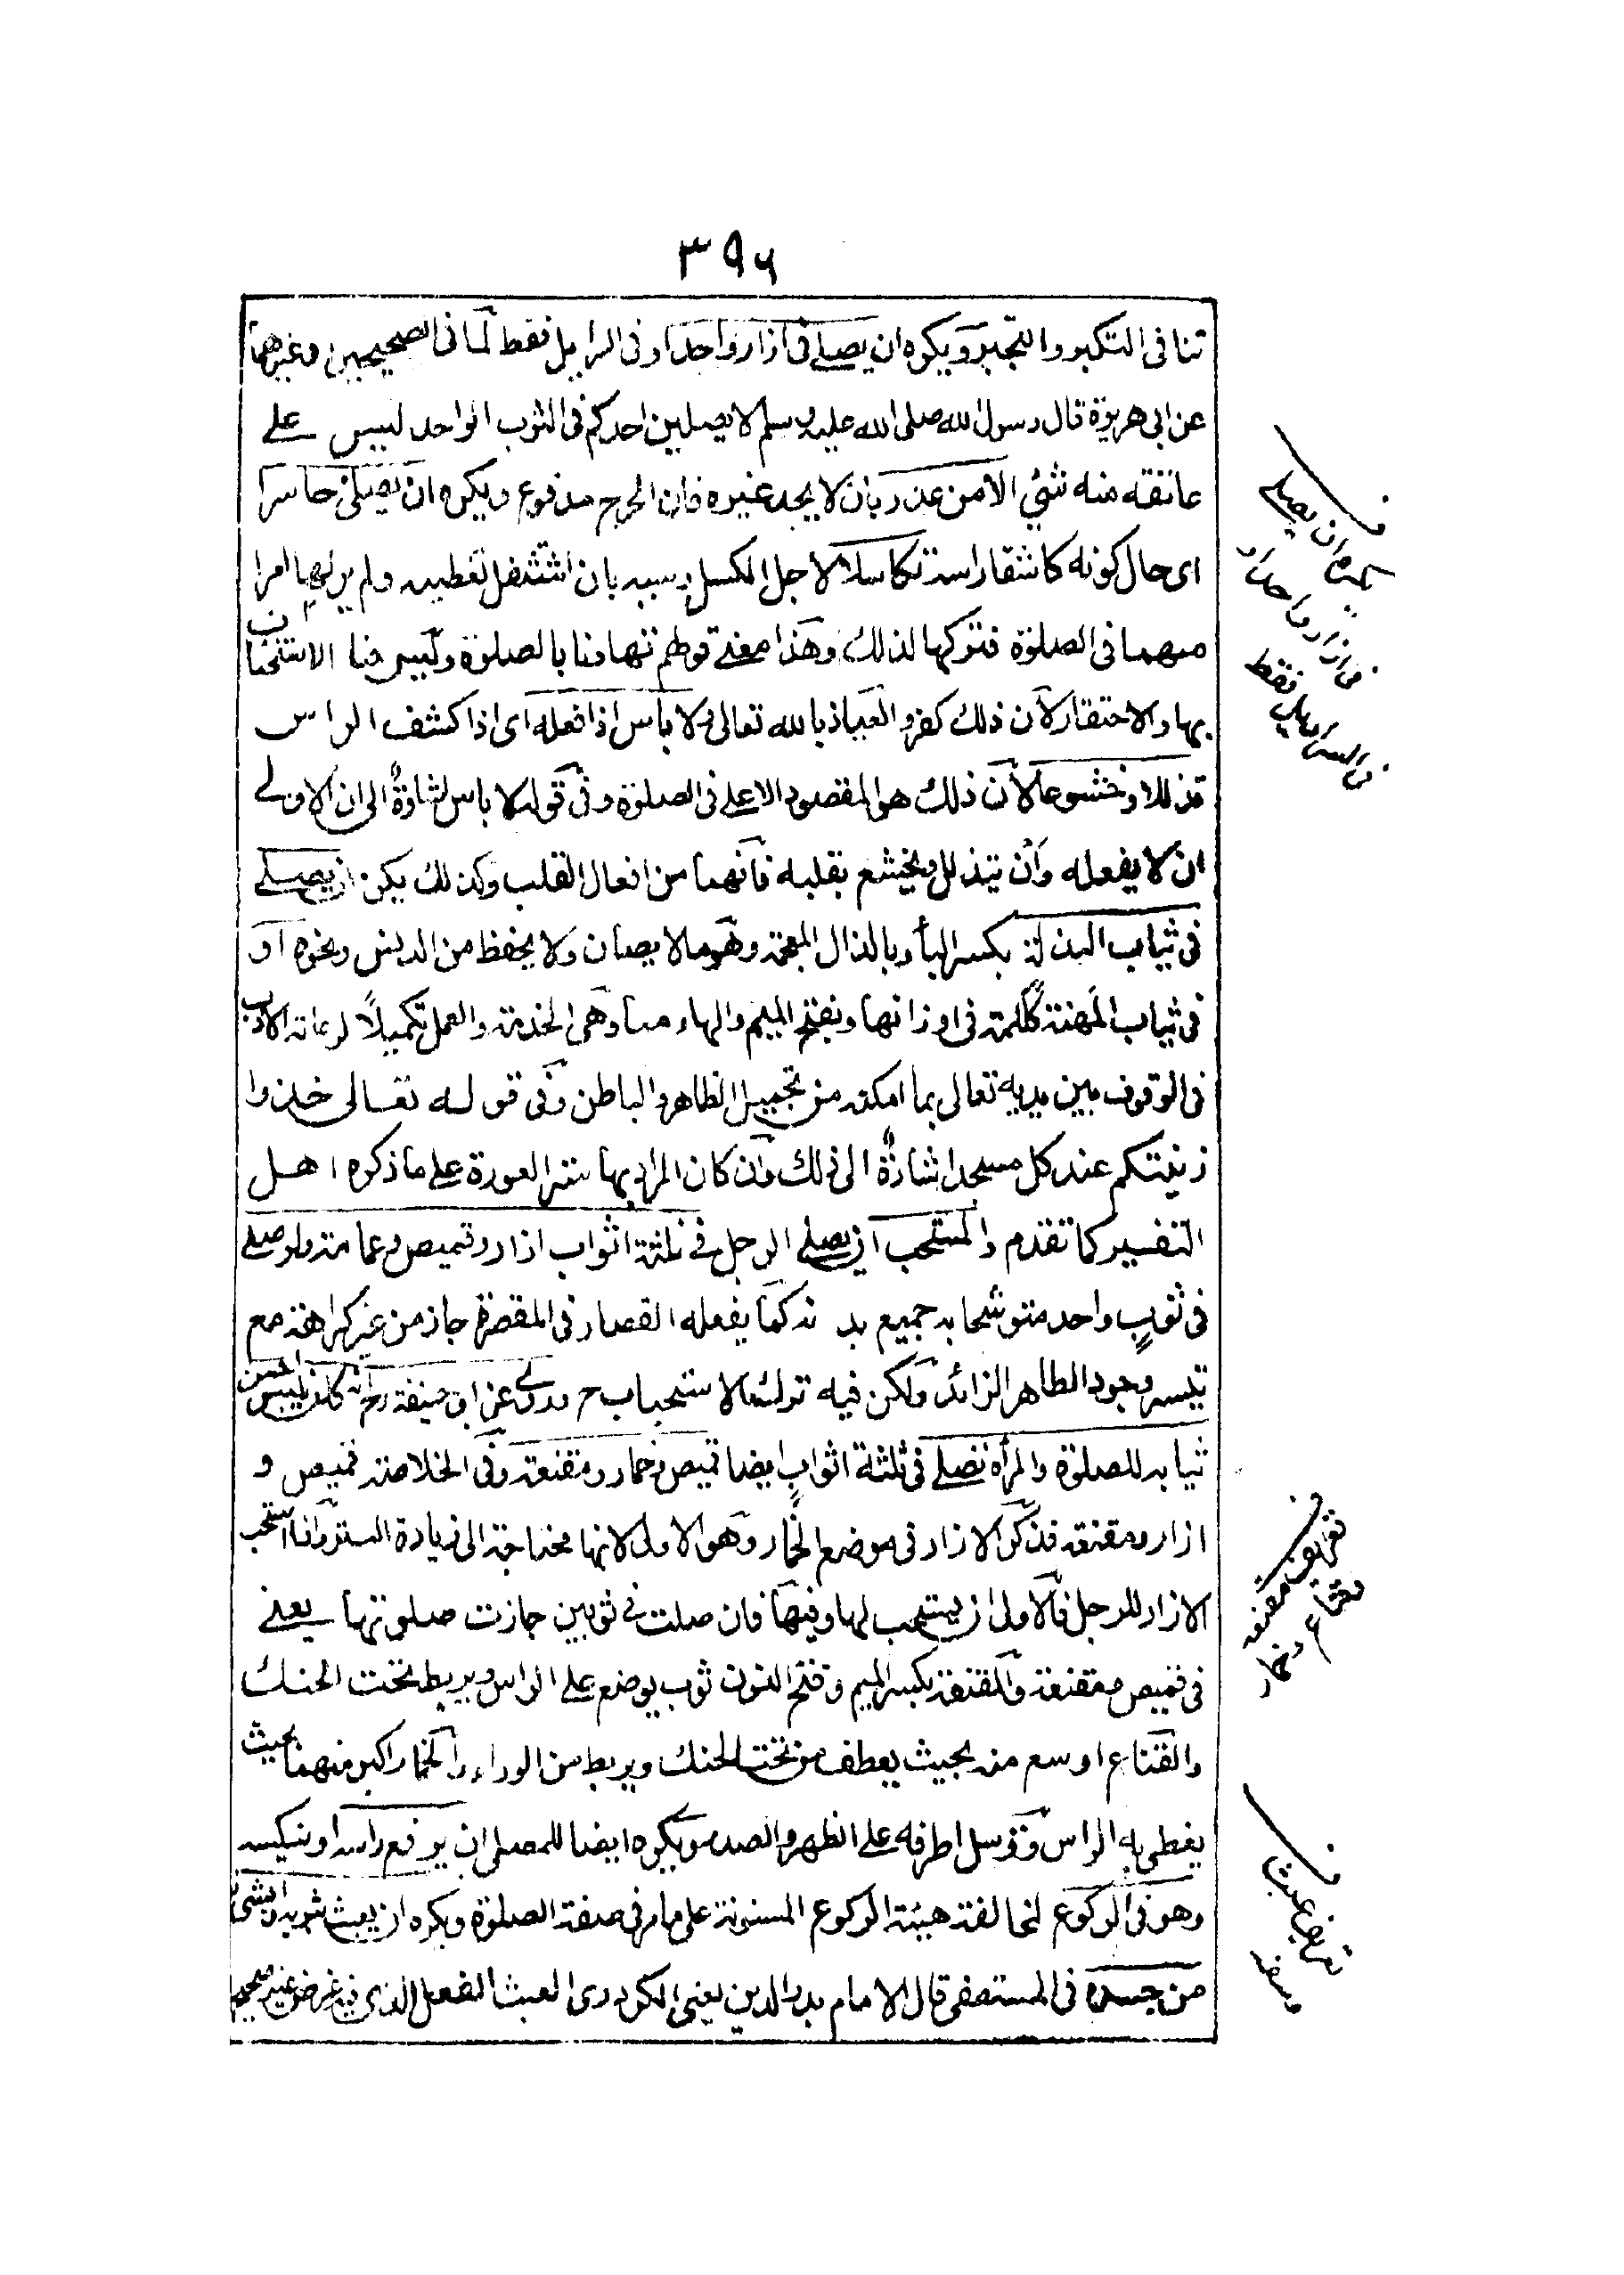 ٣٩٦
تنافى التكبر والتجبر ويكره ان يصلى فى ازار واحد او فى السراويل فقط لما فى الصحيحين وغيرهما
عن ابى هريرة قال رسول الله صلى الله عليه وسلم لا يصلين احدكم فى الثوب الواحد ليس على
عاتقه منه شئ الا من عذر بان لا يجد غيره فان الحرج مدفوع ويكره ان يصلى حاسرا
اى حال كونه كاشفا راسه تكاسلا لاجل الكسل بسببه بان استثقل تغطيته ولم يرلها امرا
مهما فى الصلوة فتركها لذلك وهذا معنى قولهم تهاونا بالصلوة وليس معنا الاستخفاف
بها والاحتقار لان ذلك كفر والعياذ بالله تعالى ولا باس اذا فعله اى اذا كشف الراس
تذللا وخشوعا لان ذلك هو المقصود الاعلى فى الصلوة وفى قوله لا باس اشارة الى ان الاولى
ان لا يفعله وان يتذلل ويخشع بقلبه فانهما من افعال القلب وكذلك يكره ان يصلى
فى ثياب البذلة بكسر الباء وبالذال المعجمة وهو ما لا يصان ولا يحفظ من الدنس ونحوه او
فى ثياب المهنة ككلمة فى اوزانها وبفتح الميم والهاء معا وهى الخدمة والعمل تكميلاً لرعاية الادب
فى الوقوف بين يديه تعالى بما امكنه من تجميل الظاهر والباطن وفى قوله تعالى خذوا
زينتكم عند كل مسجد اشارة الى ذلك وان كان المراد بها ستر العورة على ما ذكره اهل
التفسير كما تقدم والمستحب ان يصلى الرجل فى ثلثة اثواب ازار وقميص وعمامة ولو صلى
فى ثوب واحد متوشحا به جميع بدنه كما يفعله القصار فى المقصرة جاز من غير كراهة مع
تيسر وجود الطاهر الزائد ولكن فيه ترك الاستحباب وروى عن ابى حنيفة رح انه كان يلبس احسن
ثيابه للصلوة والمرأة تصلى فى ثلثة اثواب ايضا قميص وخمار ومقنعة وفى الخلاصة قميص و
ازار ومقنعة فذكر الازار فى موضع الخمار وهو الاولى لانها محتاجة الى زيادة الستر وانما استحب
الازار للرجل فالاولى ان يستحب لها وفيها فان صلت فى ثوبين جازت صلوتها يعنى
فى قميص ومقنعة والمقنعة بكسر الميم وفتح النون ثوب يوضع على الراس ويربط تحت الحنك
والقناع اوسع منه بحيث يعطف من تحت الحنك ويربط من الوراء والخمار اكبر منهما بحيث
يغطى به الراس وترسل اطرافه على الظهر والصدر ويكره ايضا للمصلى ان يرفع راسه او ينكسه
وهو فى الركوع لمخالفته هيئة الركوع المسنونة على ما مر فى صفة الصلوة ويكره ان يعبث بثوبه او بشئ
من جسده فى المستصفى قال الامام بدر الدين يعنى الكردرى العبث الفعل الذى فيه غرض غير صحيح
يكره ان يصلى
فى ازار واحد او
فى السراويل فقط
تعريف مقنعة
وقناع وخمار
تعريف عبث
وسفه